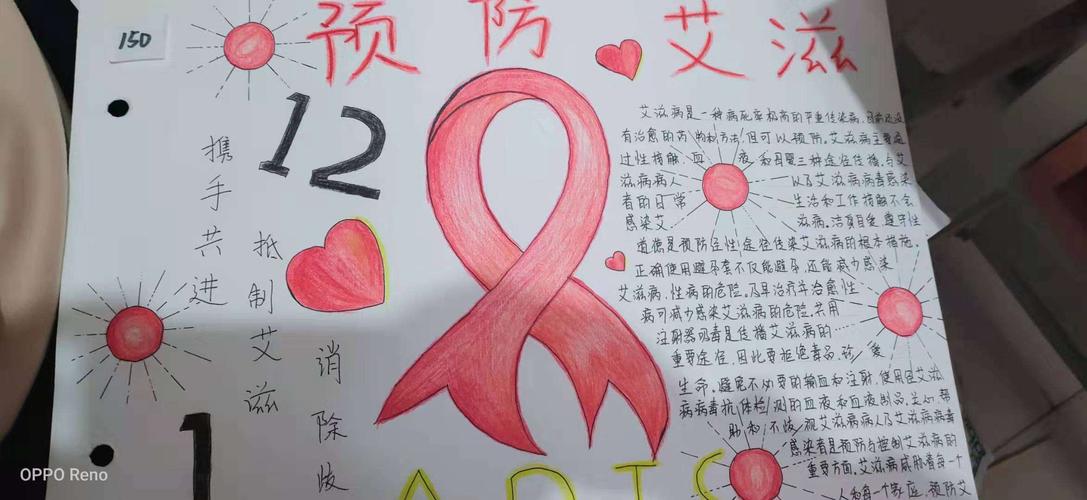 150
预防艾滋
12
携手共进
抵制艾滋
消除歧
1
ADIS
艾滋病是一种病死率极高的严重传染病,目前还没
有治愈的药物和方法,但可以预防。艾滋病主要通
过性接触、血液和母婴三种途径传播。与艾
滋病病人以及艾滋病病毒感染
者的日常生活和工作接触不会
感染艾滋病。洁身自爱、遵守性
道德是预防经性途径传染艾滋病的根本措施。
正确使用避孕套不仅能避孕,还能减少感染
艾滋病、性病的危险。及早治疗并治愈性
病可减少感染艾滋病的危险。共用
注射器吸毒是传播艾滋病的
重要途径,因此要拒绝毒品,珍爱
生命。避免不必要的输血和注射,使用经艾滋
病病毒抗体检测的血液和血液制品。关心、帮
助和不歧视艾滋病病人及艾滋病病毒
感染者是预防与控制艾滋病的
重要方面。艾滋病威胁着每一个
人和每一个家庭,预防艾
OPPO Reno